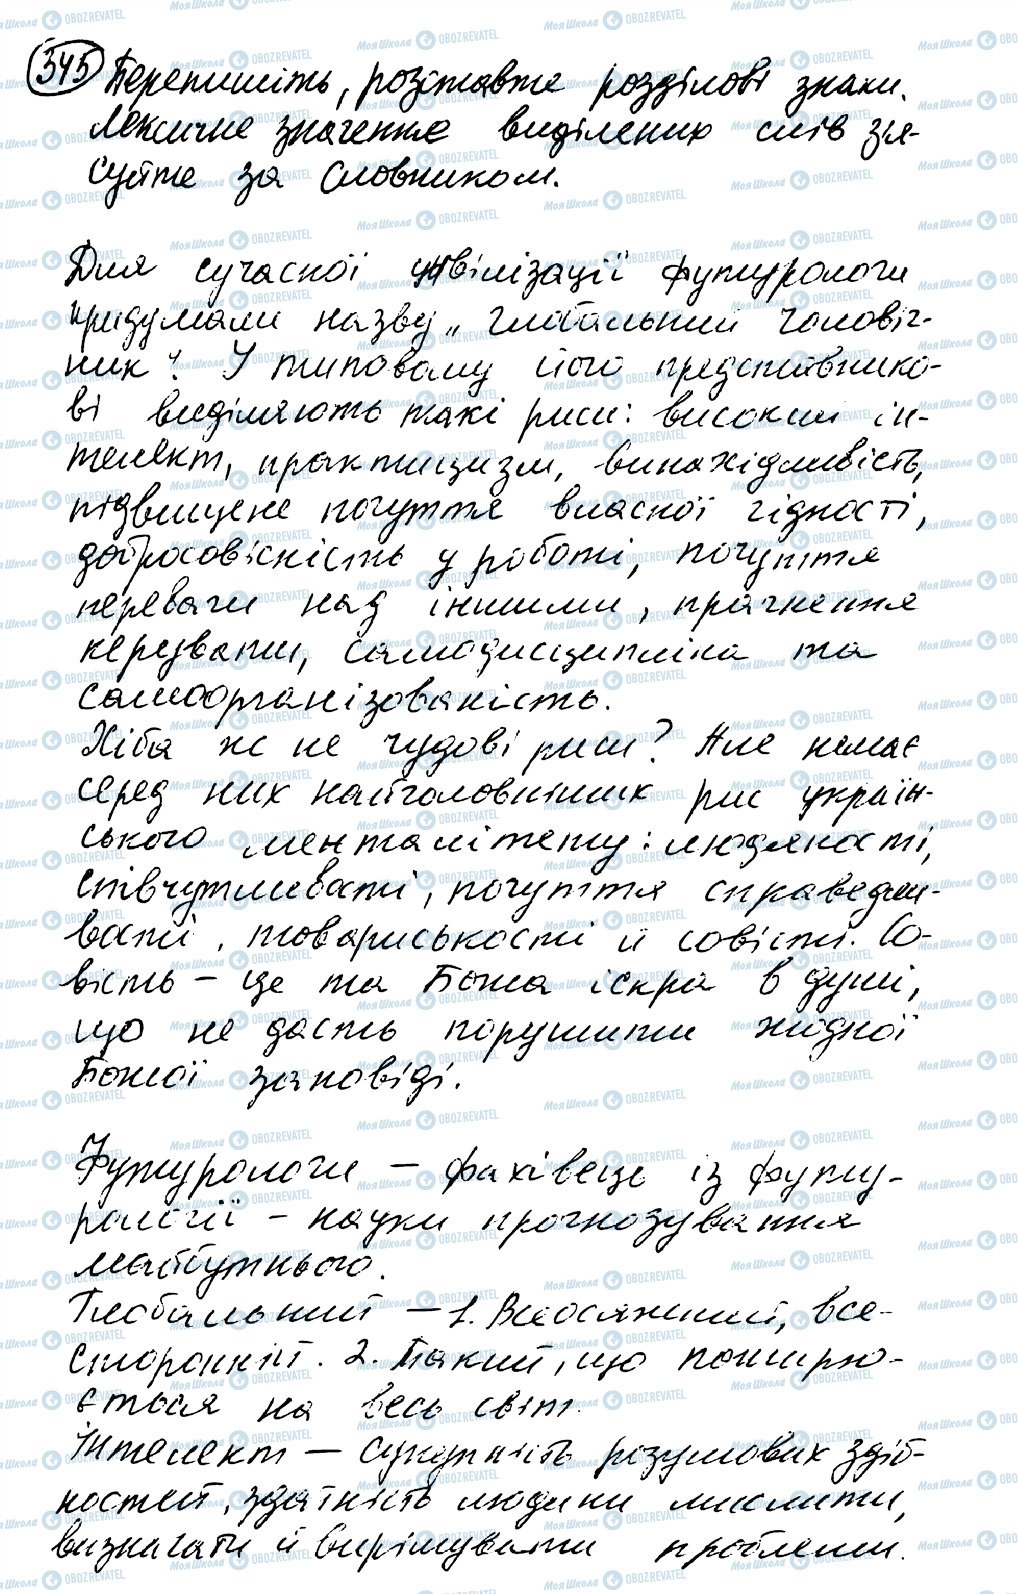 345 Перепишіть, розставте розділові знаки.
Лексичне значення виділених слів з'я-
суйте за словником.
Для сучасної цивілізації футурологи
придумали назву „глобальний чоловіч-
ник“. У типовому його представнико-
ві виділяють такі риси: високий ін-
телект, практицизм, винахідливість,
підвищене почуття власної гідності,
добросовісність у роботі, почуття
переваги над іншими, прагнення
керувати, самодисципліна та
самоорганізованість.
Хіба ж не чудові риси? Але немає
серед них найголовніших рис україн-
ського менталітету: людяності,
співчутливості, почуття справедли-
вості, товариськості й совісті. Со-
вість – це та Божа іскра в душі,
що не дасть порушити жодної
Божої заповіді.
Футурологи – фахівець із футу-
рології – науки прогнозування
майбутнього.
Глобальний – 1. Всеосяжний, все-
сторонній. 2. Такий, що поширю-
ється на весь світ.
Інтелект – сукупність розумових здіб-
ностей, здатність людини мислити,
визначати й вирішувати проблеми.